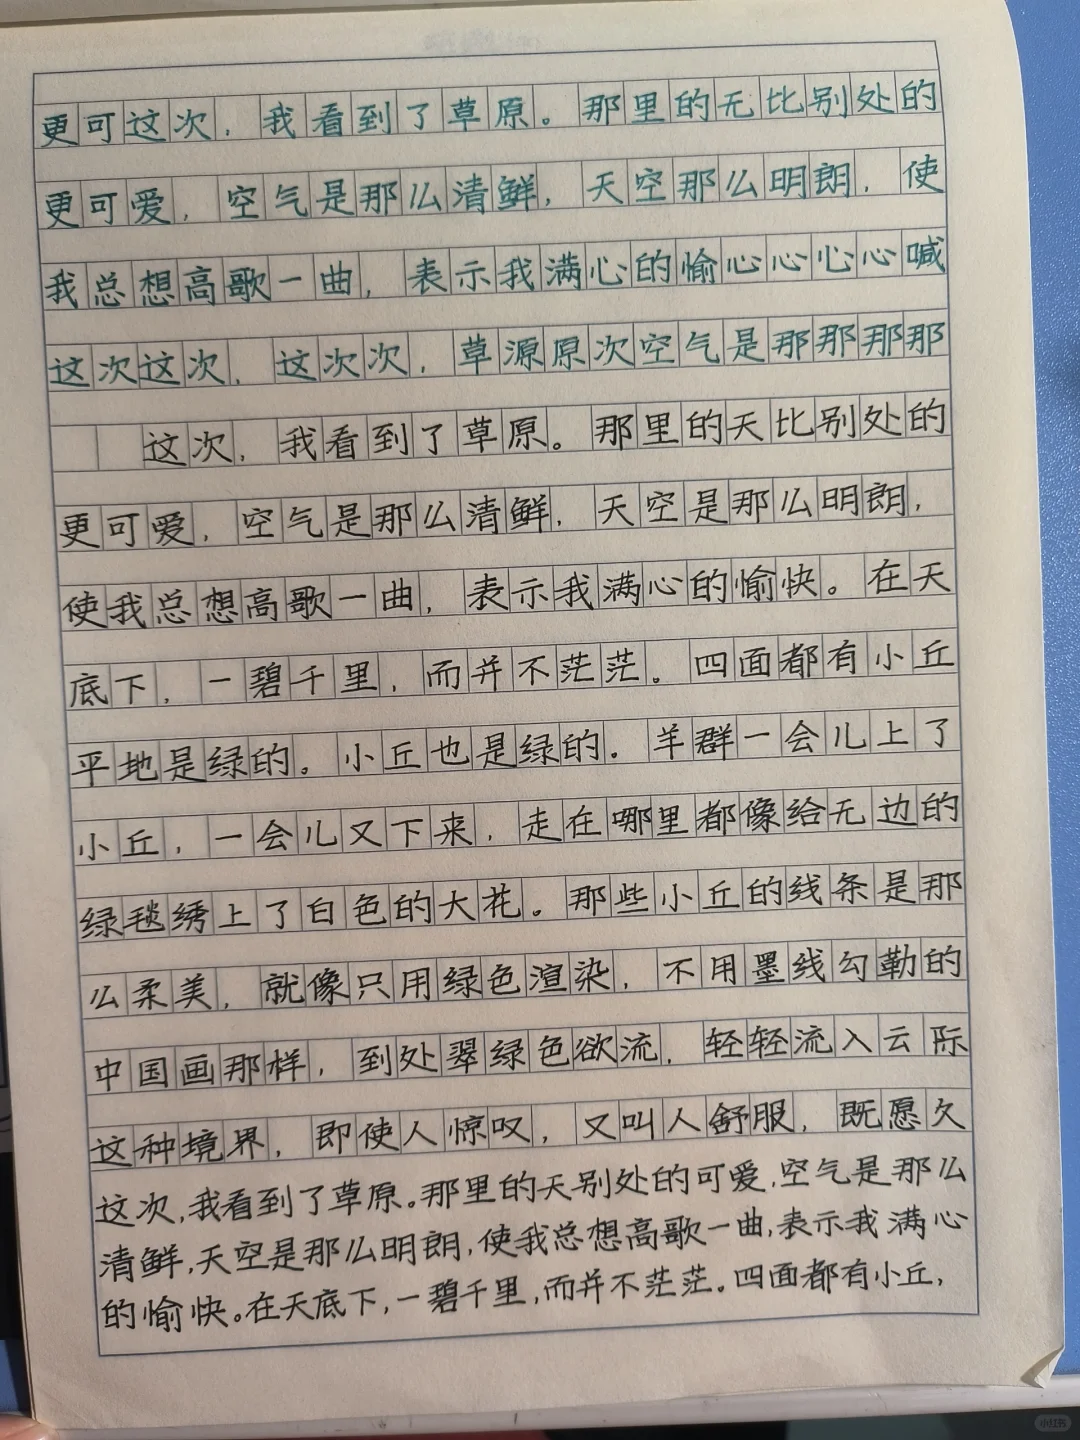 更可这次，我看到了草原。那里的无比别处的
更可爱，空气是那么清鲜，天空那么明朗，使
我总想高歌一曲，表示我满心的愉心心心心喊
这次这次，这次次，草源原次空气是那那那那
这次，我看到了草原。那里的天比别处的
更可爱，空气是那么清鲜，天空是那么明朗，
使我总想高歌一曲，表示我满心的愉快。在天
底下，一碧千里，而并不茫茫。四面都有小丘
平地是绿的。小丘也是绿的。羊群一会儿上了
小丘，一会儿又下来，走在哪里都像给无边的
绿毯绣上了白色的大花。那些小丘的线条是那
么柔美，就像只用绿色渲染，不用墨线勾勒的
中国画那样，到处翠绿色欲流，轻轻流入云际
这种境界，即使人惊叹，又叫人舒服，既愿久
这次，我看到了草原。那里的天别处的可爱，空气是那么
清鲜，天空是那么明朗，使我总想高歌一曲，表示我满心
的愉快。在天底下，一碧千里，而并不茫茫。四面都有小丘，
小红书